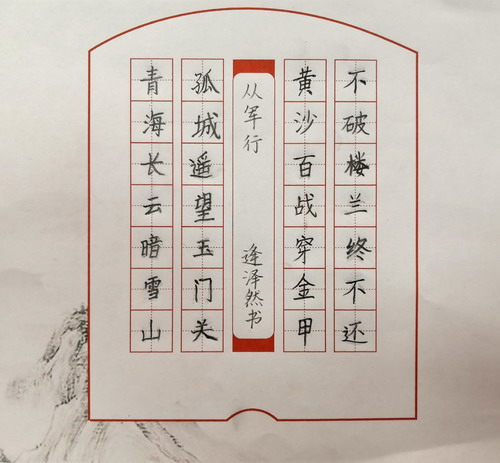 青海长云暗雪山
孤城遥望玉门关
从军行
逢泽然书
黄沙百战穿金甲
不破楼兰终不还